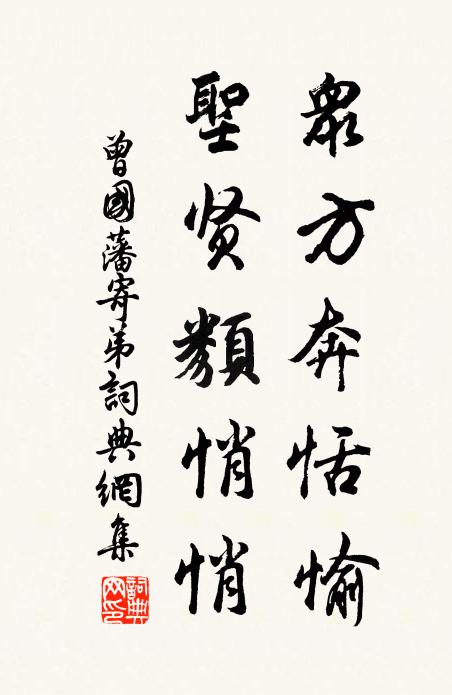 眾方奔恬愉
聖贤類悄悄
曾國藩寄弟詞典網集
詞典网印